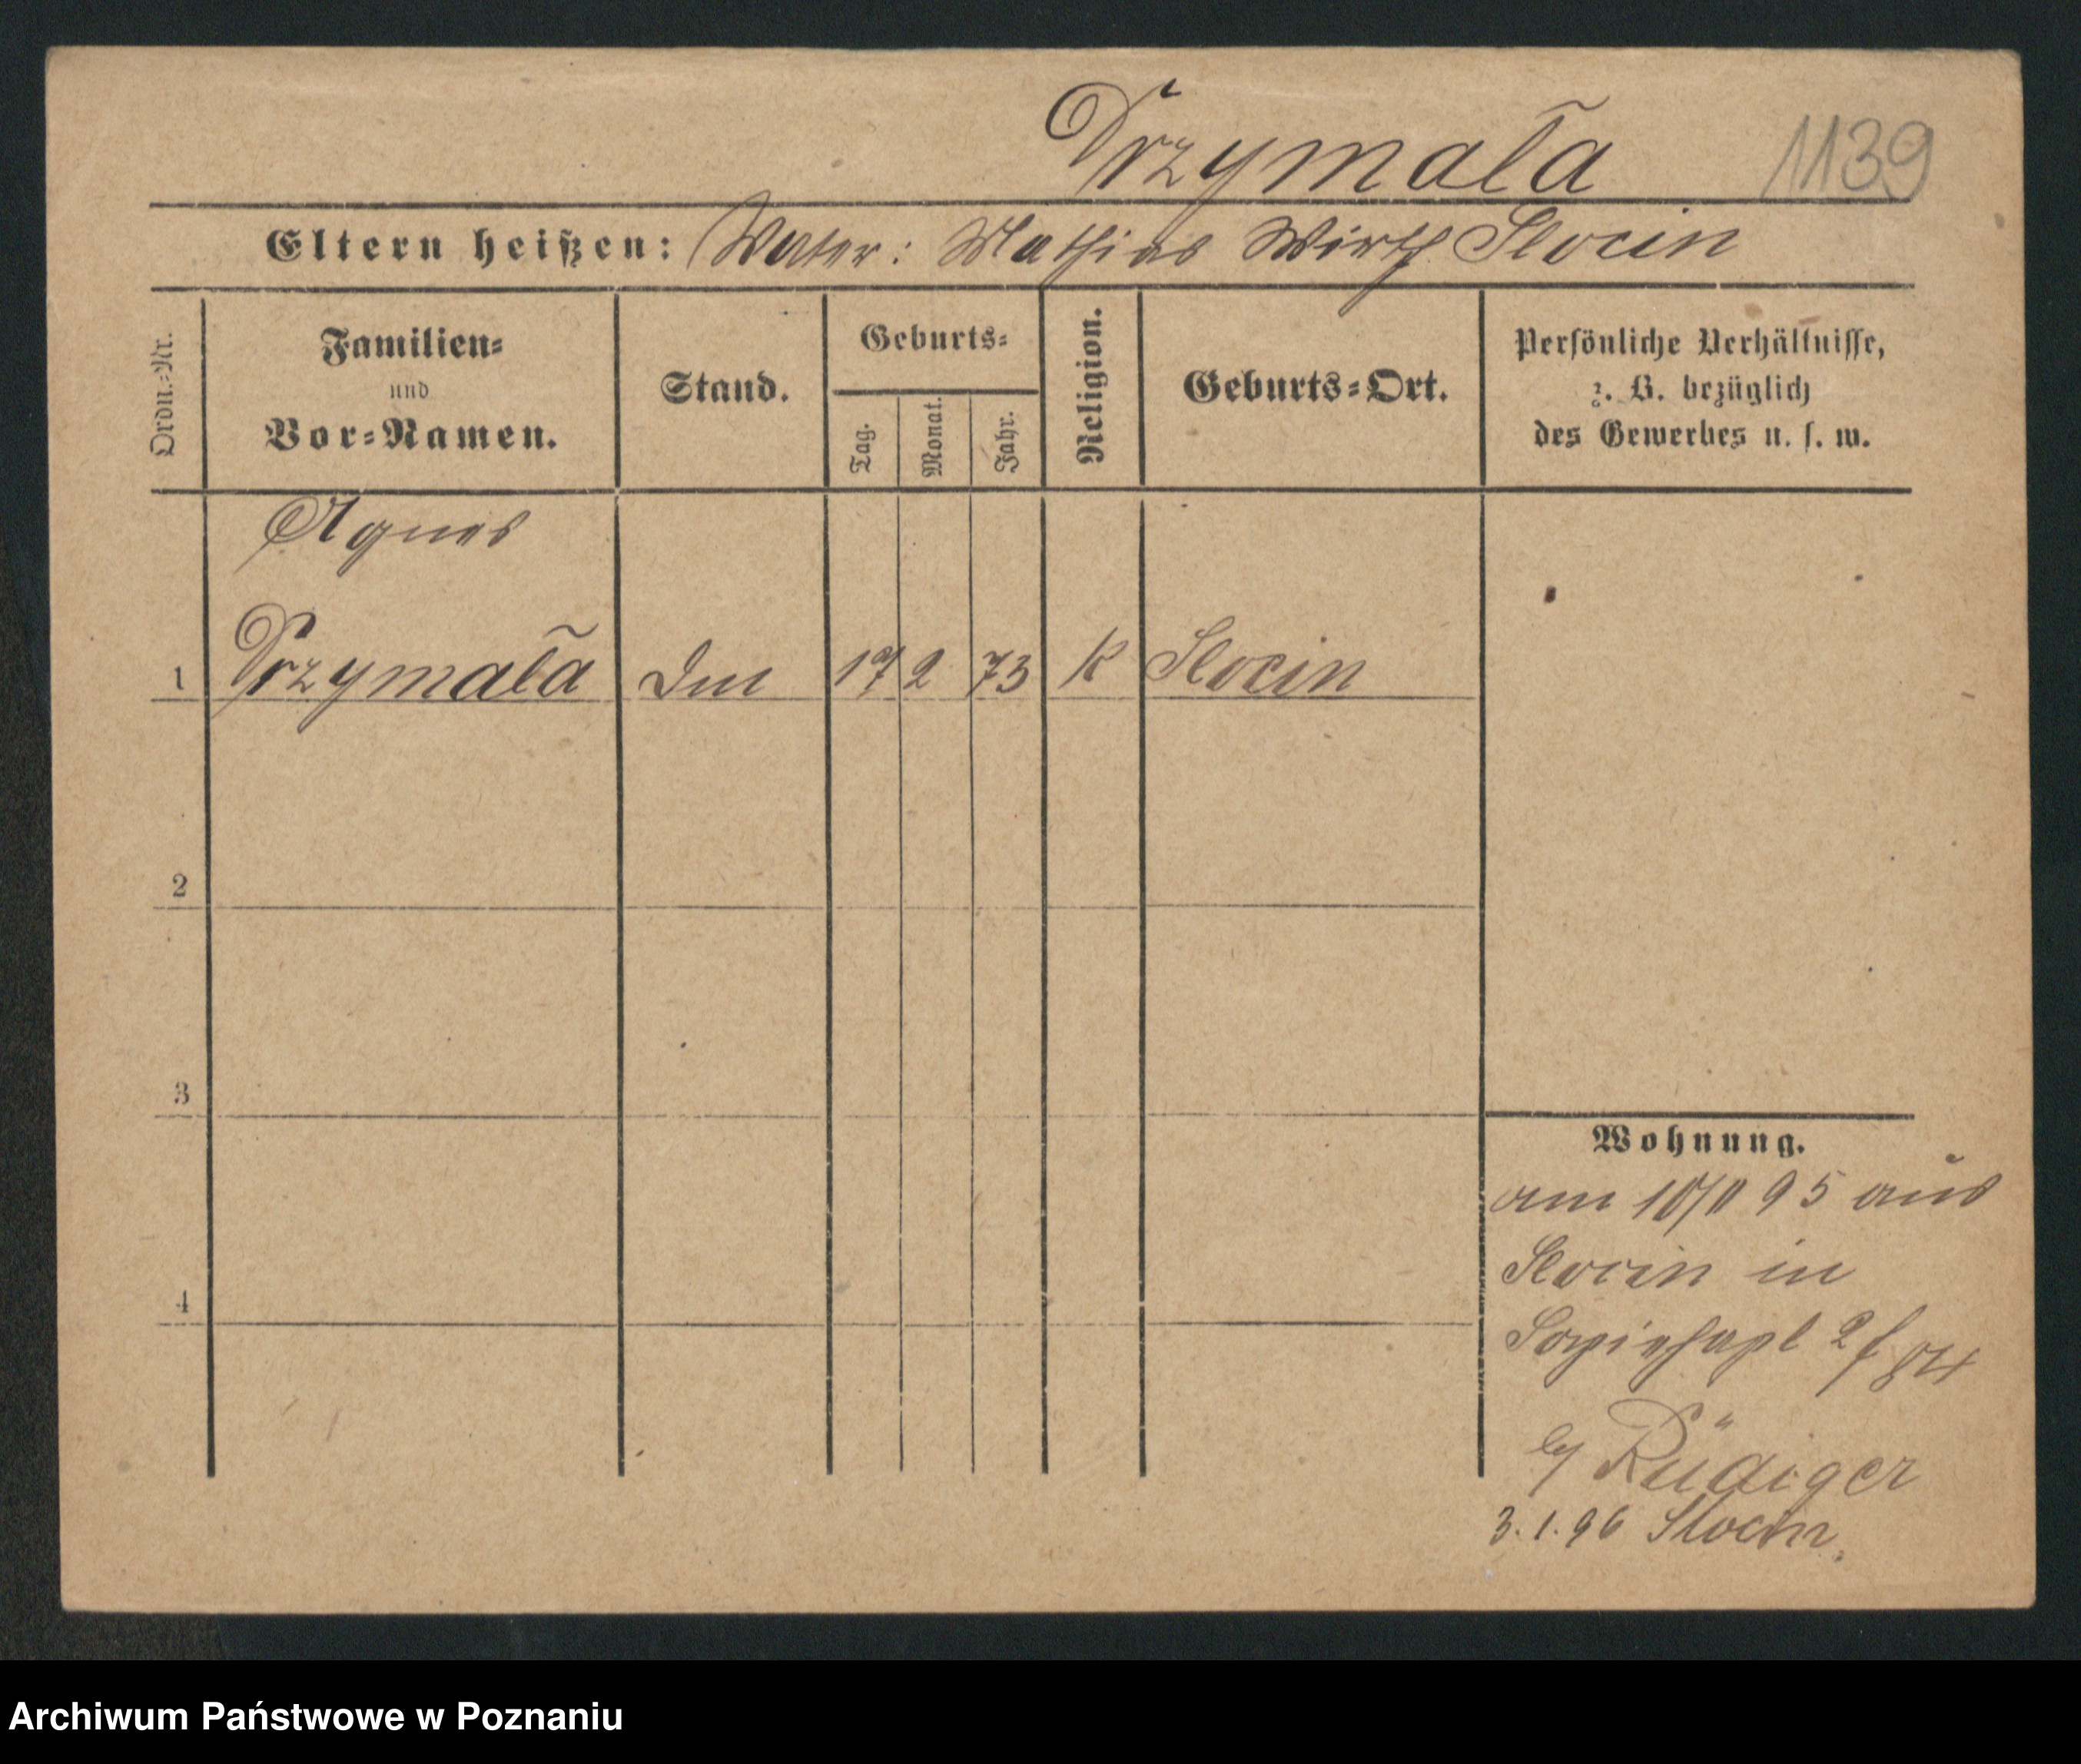 Drzymała 1139
Eltern heißen: Vater: Mathias Wirth Slocin
Ordn.-Nr.
Familien-
und
Vor-Namen.
Stand.
Geburts-
Tag.
Monat.
Jahr.
Religion.
Geburts-Ort.
Persönliche Verhältnisse,
z. B. bezüglich
des Gewerbes u. s. w.
Agnes
1 Drzymała 17 2 73 K Slocin
2
3
4
Wohnung.
am 10/11 95 aus
Slocin in
2
Rüdiger
3.1.96 Slocin.
Archiwum Państwowe w Poznaniu